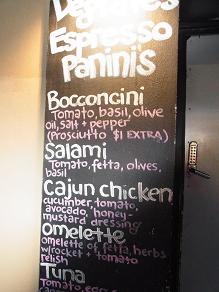 Espresso
Paninis
Bocconcini
Tomato, basil, olive
oil, salt + pepper
(Prosciutto $1 EXTRA)
Salami
Tomato, fetta, olives,
basil
Cajun chicken
cucumber, tomato,
avocado, honey-
mustard dressing
omelette
omelette of fetta, herbs
w/rocket + tomato
relish
Tuna